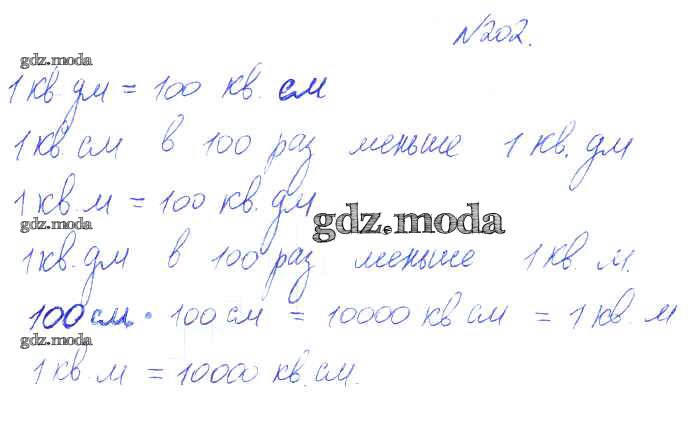 №202.
gdz.moda
1 кв. дм = 100 кв. см
1 кв. см в 100 раз меньше 1 кв. дм
1 кв. м = 100 кв. дм
gdz.moda
gdz.moda
1 кв. дм в 100 раз меньше 1 кв. м.
100 см · 100 см = 10000 кв см = 1 кв. м
gdz.moda
1 кв. м = 10000 кв. см.